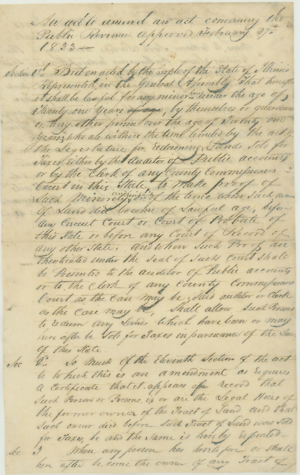 An act to amend an act concerning the
Public Revenue approved February 27th
1833
Section 1st Be it enacted by the people of the State of Illinois
represented in the General Assembly That hereafter
it shall be lawful for any minors under the age of
Twenty one Years by themselves or guardian
or any other person over the age of Twenty one
years who shall within the time limited by the act of
the Legislature for redeeming Lands sold for
Taxes either by the Auditor of Public accounts
or by the Clerk of any County Commissioners
Court in this State, to make proof of
such Minority of the time when such minor
of Minors became of lawful age before
any Circuit Court or Court of Probate of
this State or before any Court of Record of
any other State. And when such Proof au-
thenticated under the Seal of such Court shall
be Presented to the auditor of Public accounts
or to the Clerk of any County Commissioners
Court as the Case may be said auditor or Clerk
as the case may be Shall allow such Person
to redeem any Lands which have been or may
here after be Sold for Taxes in pursuance of the Laws
of this State
Sec 2. So Much of the Eleventh Section of the act
to which this is an amendment as requires
a Certificate that it appears of record that
such Person or Persons is or are the Legal Heirs of
the former owner of the Tract of Land and that
such owner died before such Tract of Land was sold
for Taxes, be and the same is hereby repealed.
Sec 3 When any person has heretofore or shall
here after become the owner of any Tract of